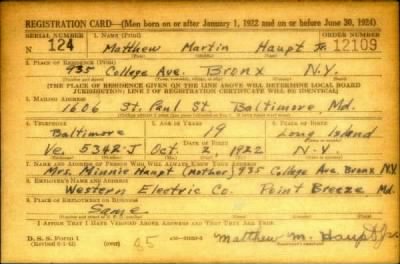 REGISTRATION CARD—(Men born on or after January 1, 1922 and on or before June 30, 1924)
SERIAL NUMBER 1. NAME (Print) ORDER NUMBER
124 Matthew Martin Haupt Jr. 12109
2. PLACE OF RESIDENCE (Print)
935 College Ave. Bronx N.Y.
[THE PLACE OF RESIDENCE GIVEN ON THE LINE ABOVE WILL DETERMINE LOCAL BOARD
JURISDICTION; LINE 2 OF REGISTRATION CERTIFICATE WILL BE IDENTICAL]
3. MAILING ADDRESS
1606 St. Paul St Baltimore Md.
4. TELEPHONE 5. AGE IN YEARS 6. PLACE OF BIRTH
Baltimore 19 Long Island
DATE OF BIRTH
Ve. 5342-J Oct. 2, 1922 N.Y.
7. NAME AND ADDRESS OF PERSON WHO WILL ALWAYS KNOW YOUR ADDRESS
Mrs. Minnie Haupt (mother) 935 College Ave. Bronx N.Y.
8. EMPLOYER'S NAME AND ADDRESS
Western Electric Co. Point Breeze Md.
9. PLACE OF EMPLOYMENT OR BUSINESS
Same
I AFFIRM THAT I HAVE VERIFIED ABOVE ANSWERS AND THAT THEY ARE TRUE.
D. S. S. Form 1
(over) Matthew M. Haupt Jr.